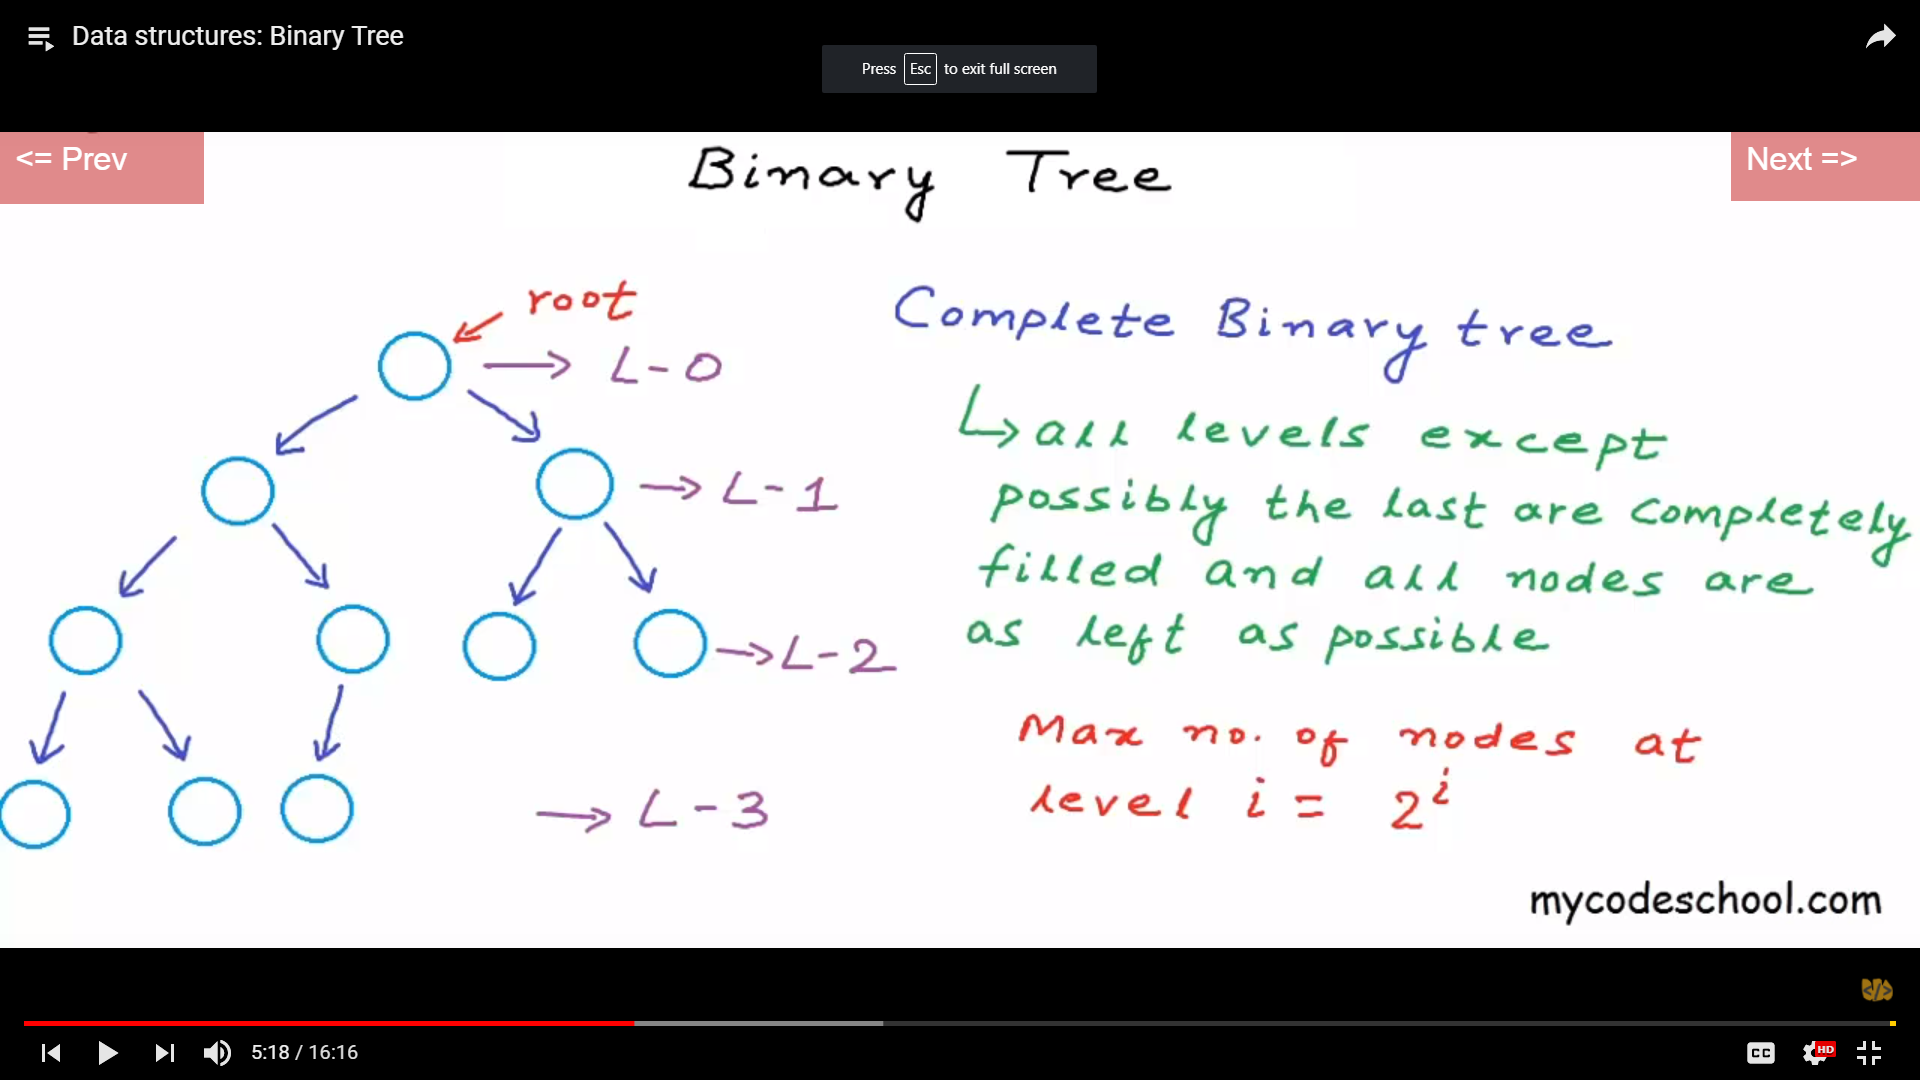 Data structures: Binary Tree
Press Esc to exit full screen
<= Prev
Next =>
Binary Tree
root
L-0
L-1
L-2
L-3
Complete Binary tree
↳ all levels except
possibly the last are completely
filled and all nodes are
as left as possible
Max no. of nodes at
level i = 2^i
mycodeschool.com
</>
5:18 / 16:16
CC
HD